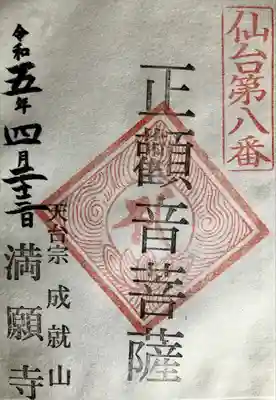 仙台第八番
正観音菩薩
令和五年四月二十二日
天台宗 成就山
満願寺